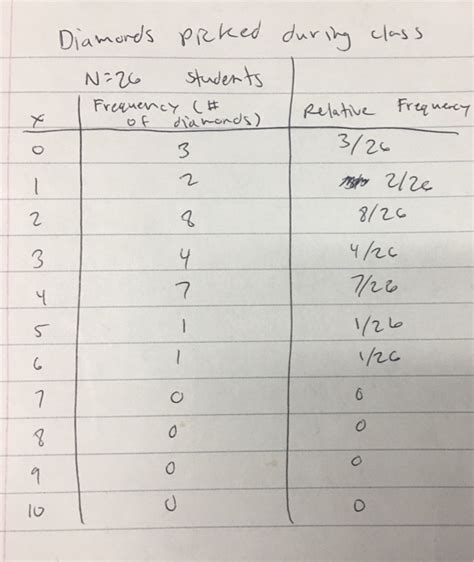 Diamonds picked during class
N=26 students
x Frequency (# of diamonds) Relative Frequency
0 3 3/26
1 2 2/26
2 8 8/26
3 4 4/26
4 7 7/26
5 1 1/26
6 1 1/26
7 0 0
8 0 0
9 0 0
10 0 0